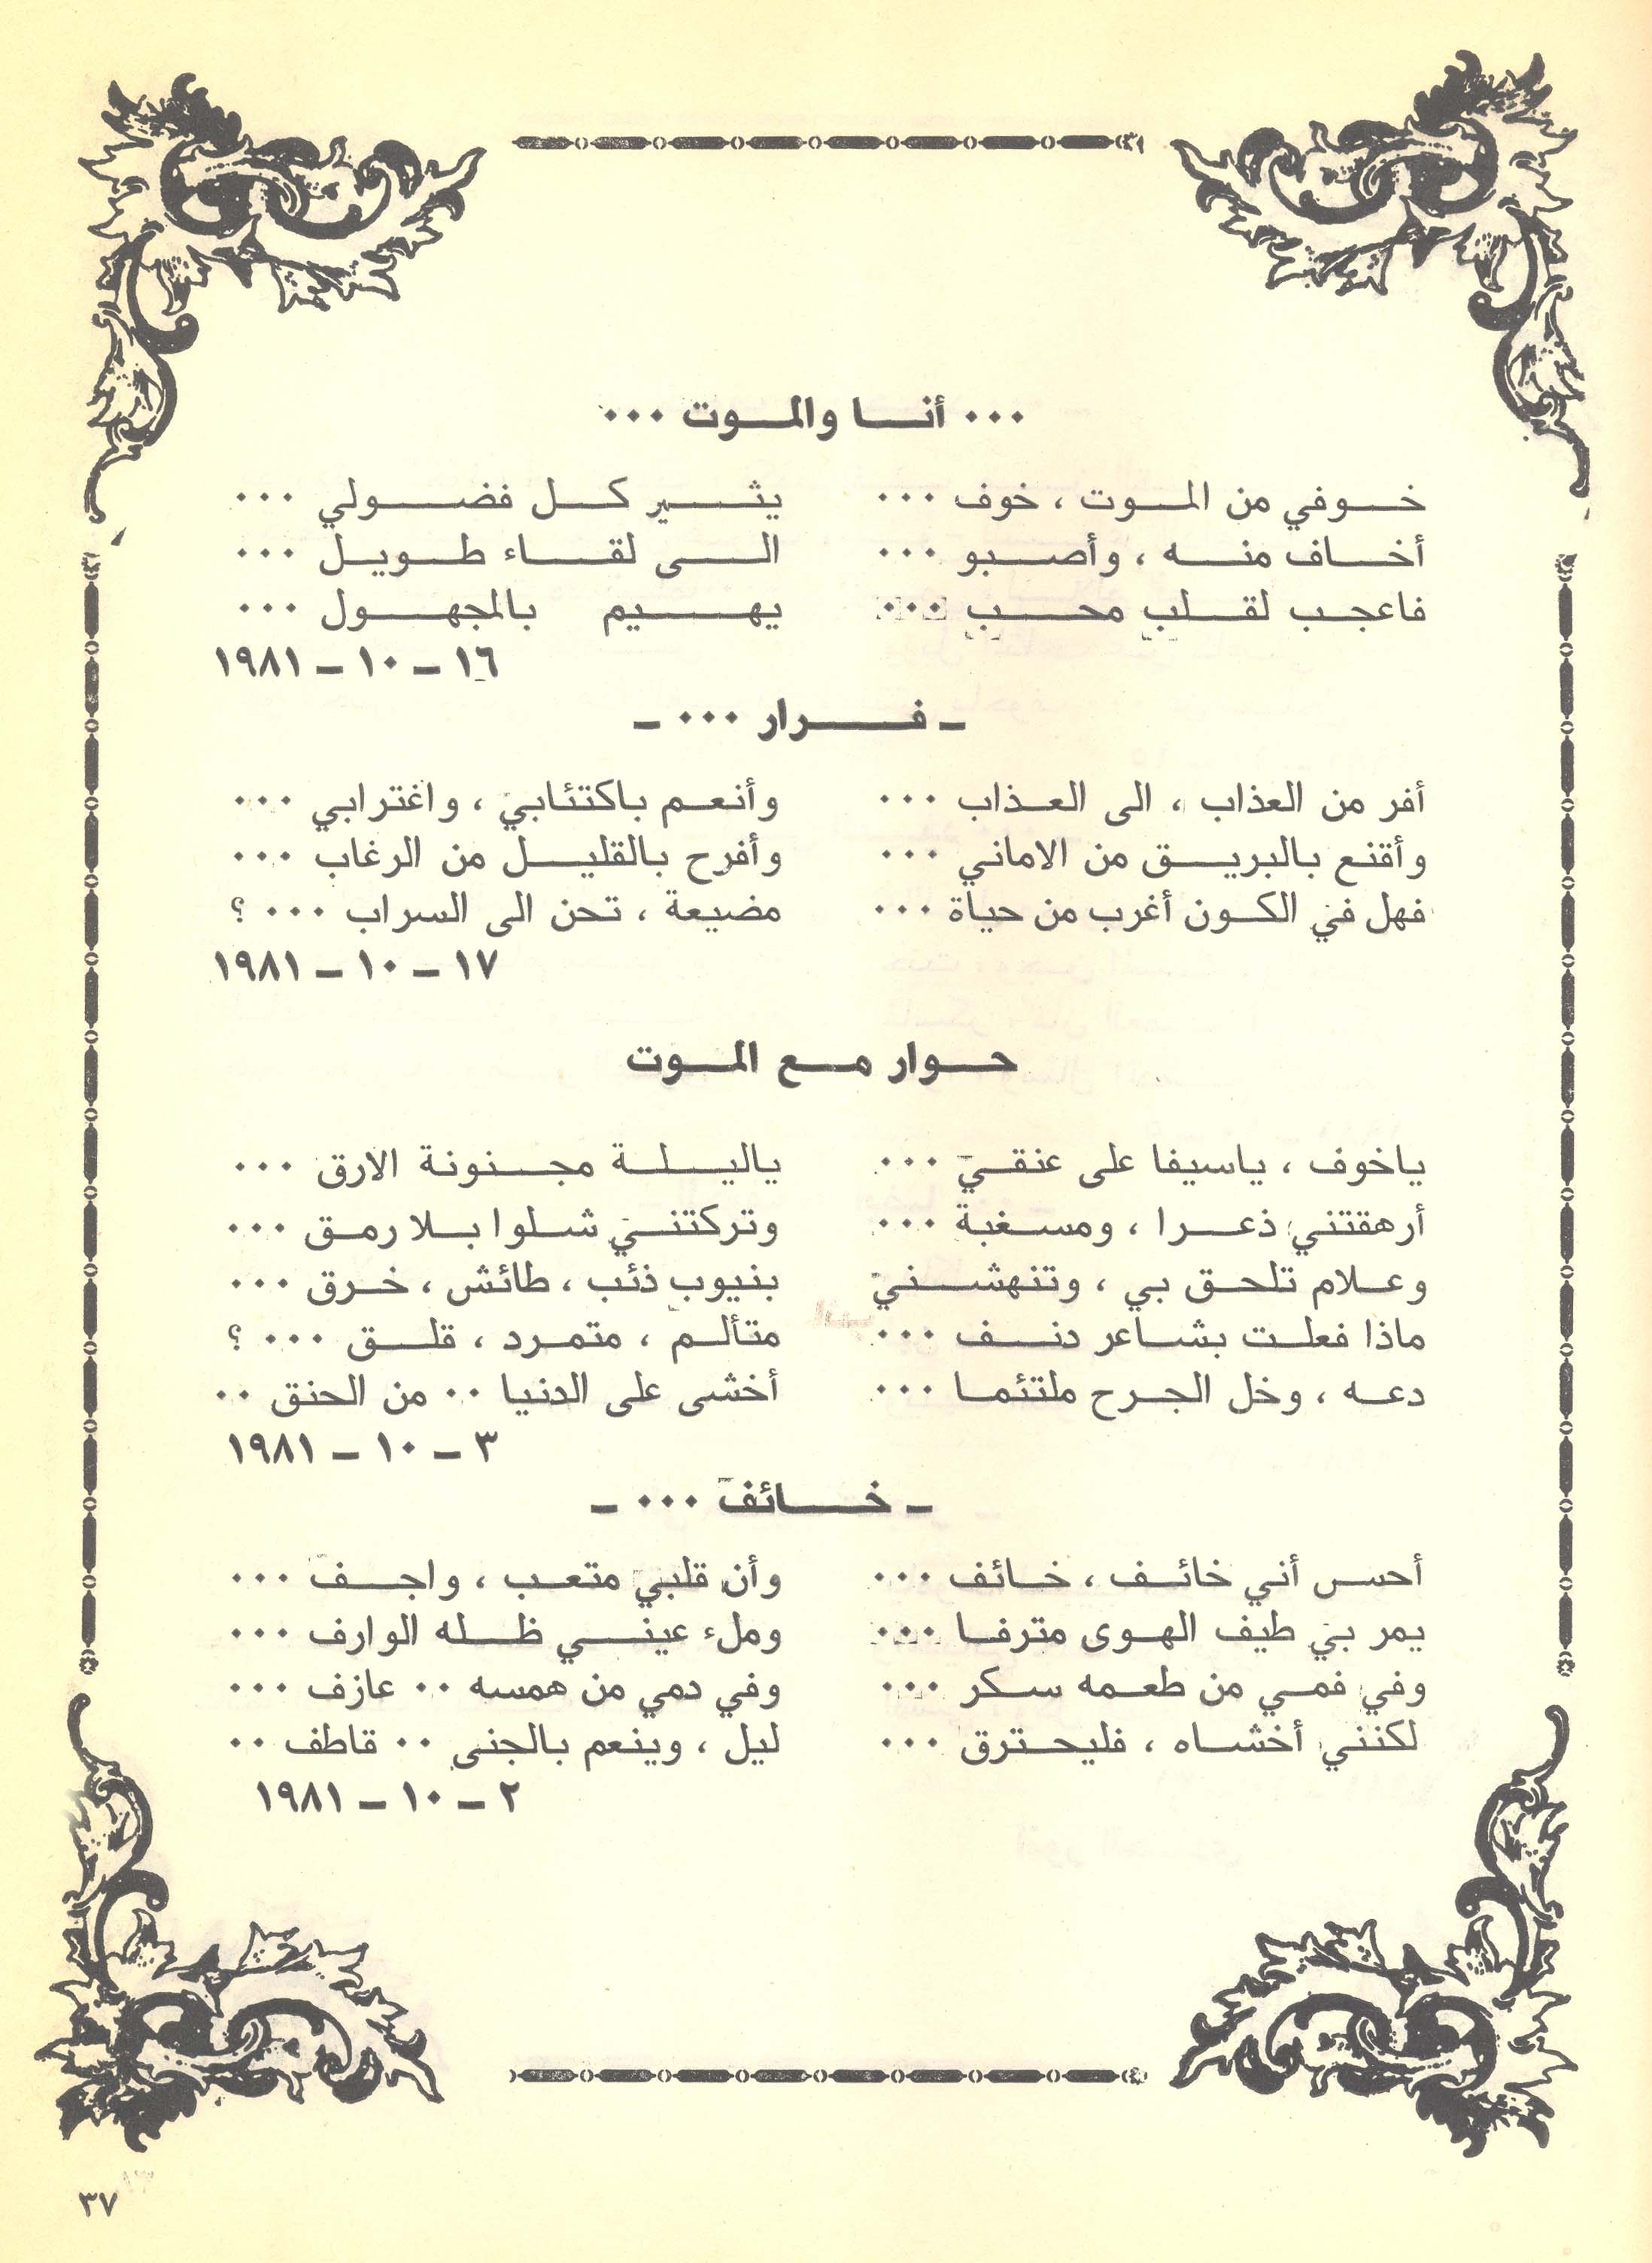 ... أنا والموت ...
خوفي من الموت ، خوف ... يثير كل فضولي ...
أخاف منه ، وأصبو ... الى لقاء طويل ...
فاعجب لقلب محب ... يهيم بالمجهول ...
١٦ - ١٠ - ١٩٨١
- فرار ... -
أفر من العذاب ، الى العذاب ... وأنعم باكتئابي ، واغترابي ...
وأقنع بالبريق من الاماني ... وأفرح بالقليل من الرغاب ...
فهل في الكون أغرب من حياة ... مضيعة ، تحن الى السراب ... ؟
١٧ - ١٠ - ١٩٨١
حوار مع الموت
ياخوف ، ياسيفا على عنقي ... ياليلة مجنونة الارق ...
أرهقتني ذعرا ، ومسغبة ... وتركتني شلوا بلا رمق ...
وعلام تلحق بي ، وتنهشني بنيوب ذئب ، طائش ، خرق ...
ماذا فعلت بشاعر دنف ... متألم ، متمرد ، قلق ... ؟
دعه ، وخل الجرح ملتئما ... أخشى على الدنيا .. من الحنق ..
٣ - ١٠ - ١٩٨١
- خائف ... -
أحس أني خائف ، خائف ... وأن قلبي متعب ، واجف ...
يمر بي طيف الهوى مترفا ... وملء عيني ظله الوارف ...
وفي فمي من طعمه سكر ... وفي دمي من همسه .. عازف ...
لكنني أخشاه ، فليحترق ... ليل ، وينعم بالجنى .. قاطف ..
٢ - ١٠ - ١٩٨١
٣٧